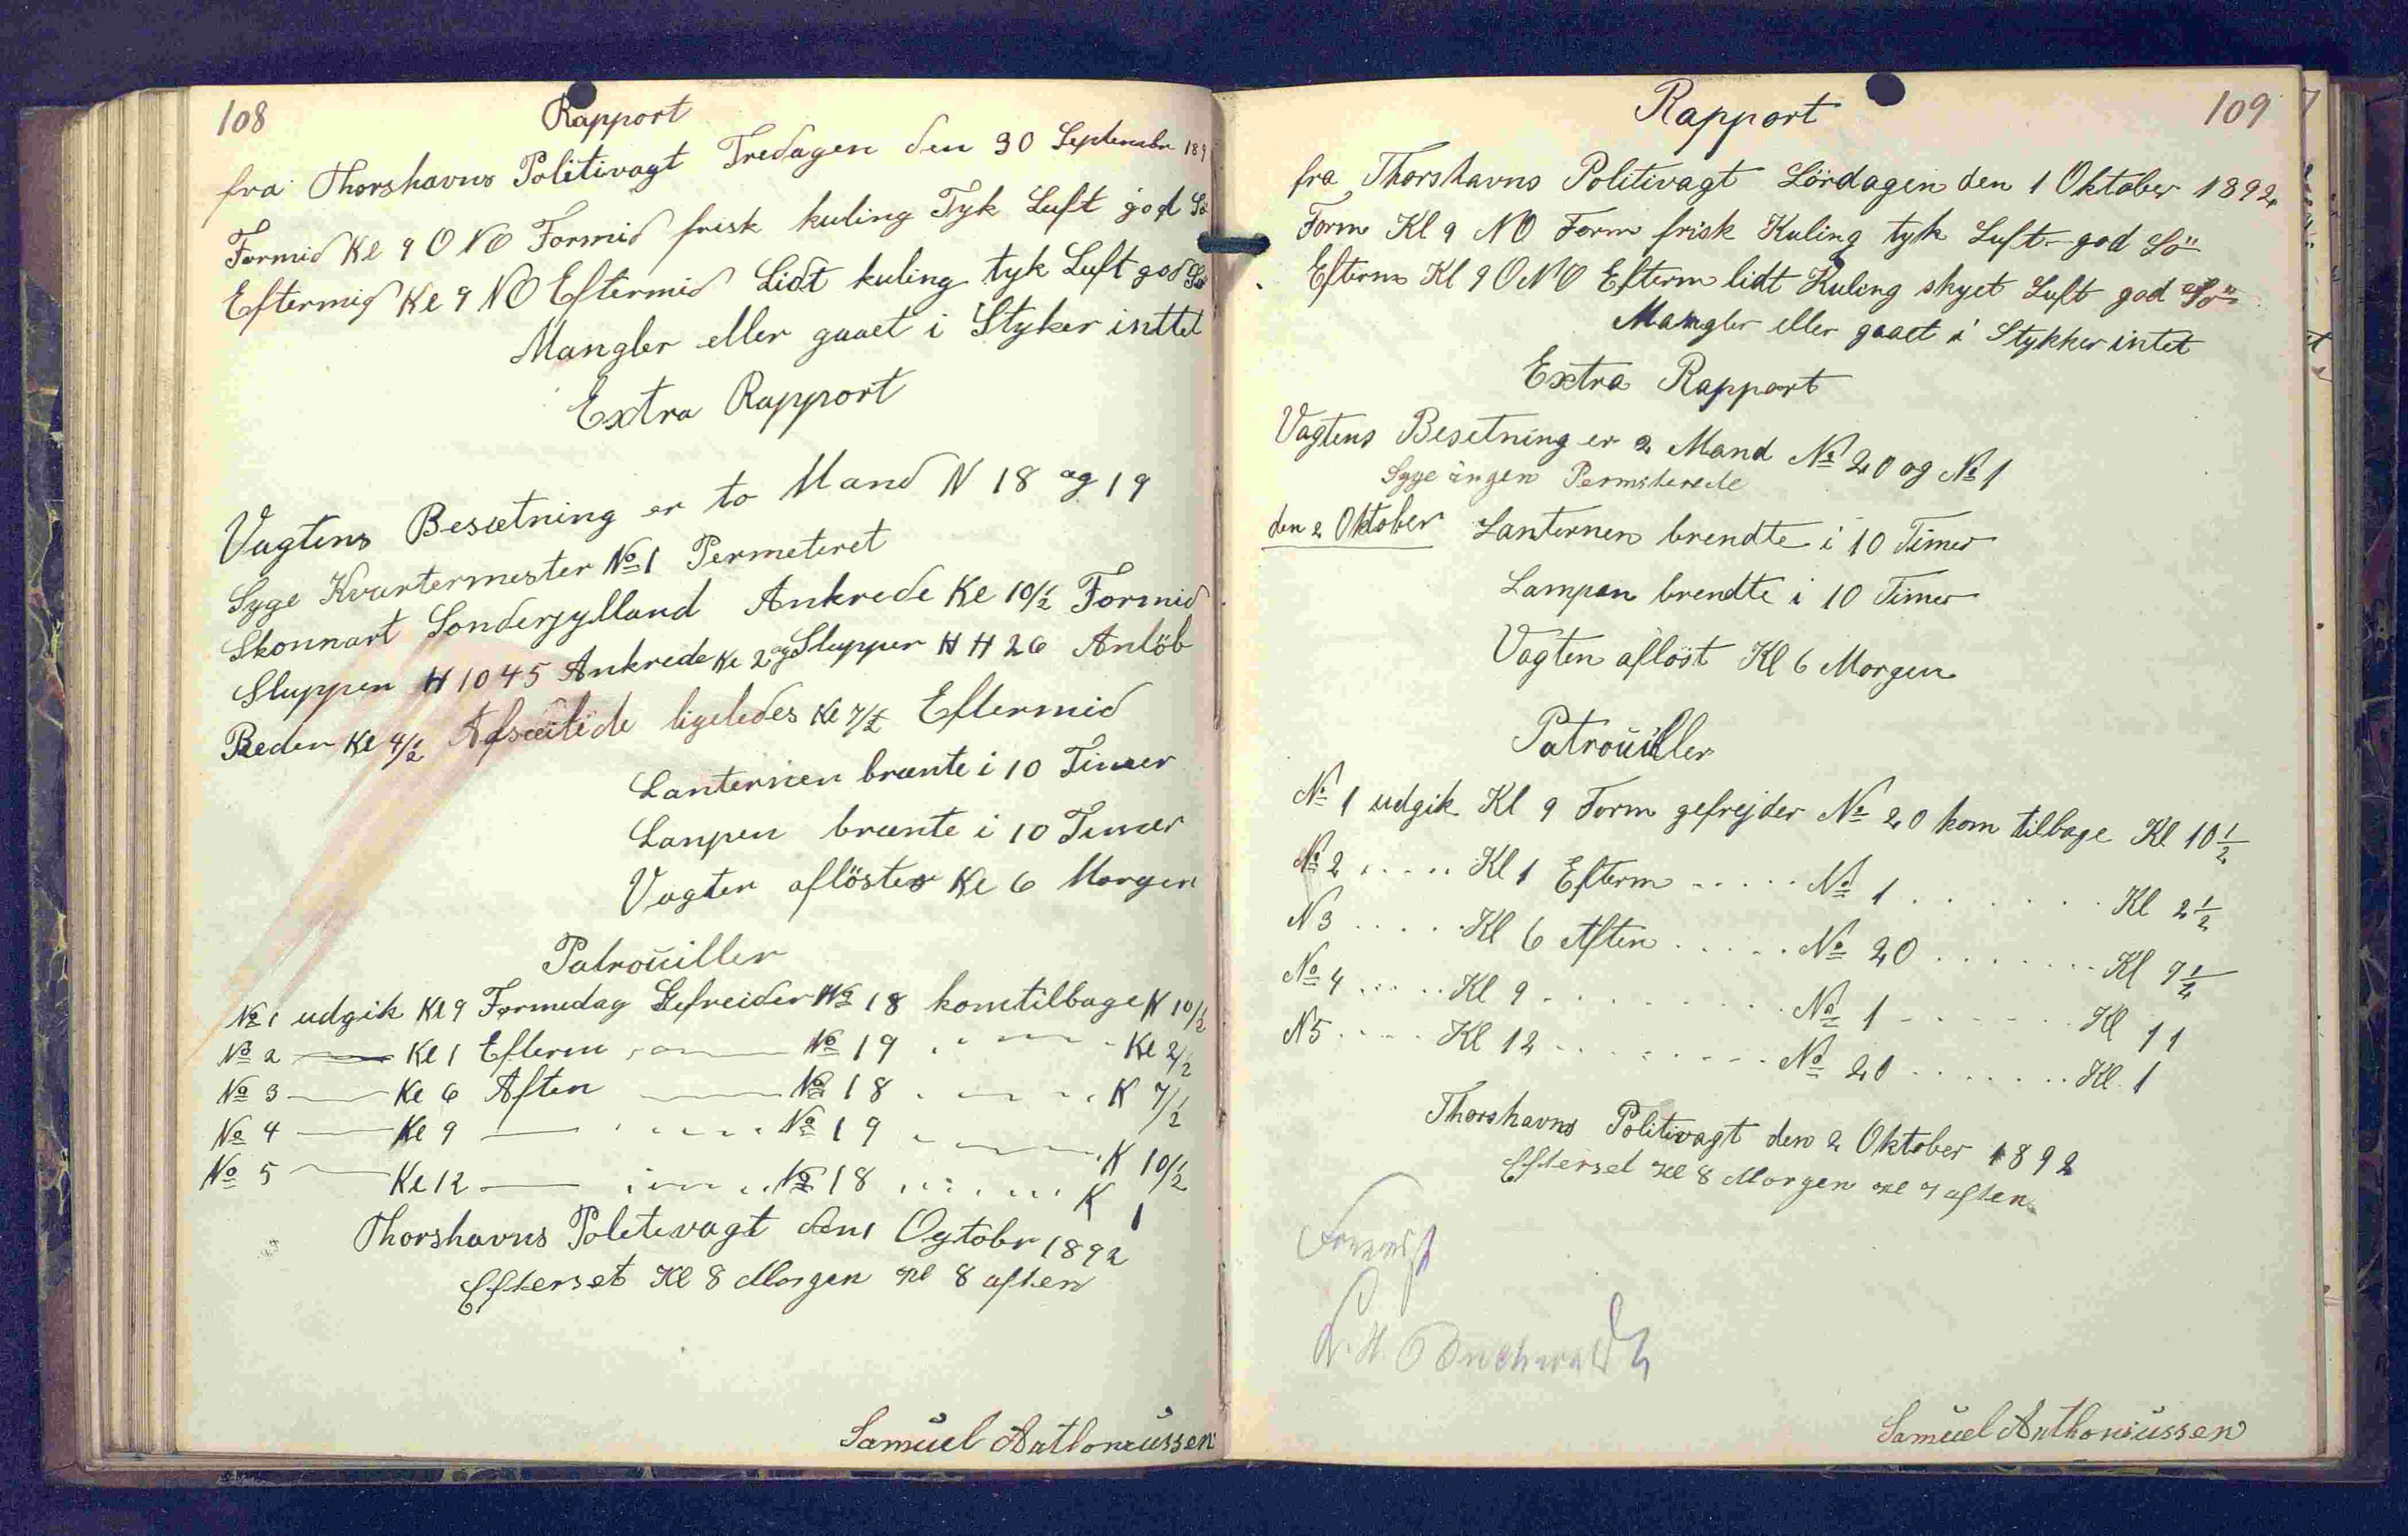 108
Rapport
fra Thorshavns Politivagt Fredagen den 30 Septembr 189
Formid Kl 9 O NO Formid frisk kuling Tyk Luft god Sö
Eftermid Kl 9 NO Eftermid Lidt kuling tyk Luft god Sö
Mangler eller gaaet i Styker inttet
Extra Rapport
Vagtens Besætning er to Mand N 18 og 19
Syge Kvartermester No 1 Permeteret
Skonnart Sonderjylland Ankrede Kl 10½ Formid
Sluppen H 1045 Ankrede Kl 2 og Sluppen H H 26 Anlöb
Reden Kl 4½ Afseilede ligeledes Kl 7½ Eftermid
Lanternen brænte i 10 Timer
Lanpen brænte i 10 Timer
Vagten aflöstes Kl 6 Morgen
Patrouiller
No 1 udgik Kl 9 Formedag Gefreider No 18 kom tilbage K 10½
No 2 — Kl 1 Efterm — No 19 — Kl 2½
No 3 — Kl 6 Aften — No 18 — K 7½
No 4 — Kl 9 — No 19 — K 10½
No 5 — Kl 12 — No 18 — K 1
Thorshavns Politivagt den 1 Ogtobr 1892
Efterset Kl 8 Morgen Kl 8 aften
Samuel Anthoniussen
109
Rapport
fra Thorshavns Politivagt Lördagen den 1 Oktober 1892
Form Kl 9 NO Form frisk Kuling tyk Luft god Sö
Efterm Kl 9 ONO Efterm lidt Kuling skyet Luft god Sö
Mangler eller gaaet i Stykker intet
Extra Rapport
Vagtens Besetning er 2 Mand No 20 og No 1
Syge ingen Permiterede
den 2 Oktober Lanternen brendte i 10 Timer
Lampen brendte i 10 Timer
Vagten aflöst Kl 6 Morgen
Patrouiller
No 1 udgik Kl 9 Form gefrejder No 20 kom tilbage Kl 10½
No 2 ..... Kl 1 Efterm ..... No 1 ....... Kl 2½
N 3 ..... Kl 6 Aften ..... No 20 ....... Kl 7½
No 4 ..... Kl 9 ......... No 1 ...... Kl 11
N 5 .... Kl 12 ........ No 20 ....... Kl 1
Thorshavns Politivagt den 2 Oktober 1892
Efterset Kl 8 Morgen Kl 7 aften
Buchwaldt
Samuel Anthoniussen